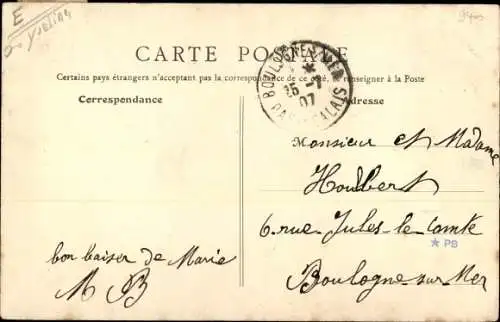 E
CARTE POSTALE
Certains pays étrangers n'acceptant pas la correspondance de ce côté, se renseigner à la Poste
Correspondance
Adresse
BOULOGNE-S-MER
*
15 -1
07
PAS-DE-CALAIS
Monsieur et Madame
Houlbert
6 rue Jules-le-comte
★ PB
Boulogne-sur-Mer
bon baiser de Marie
M B